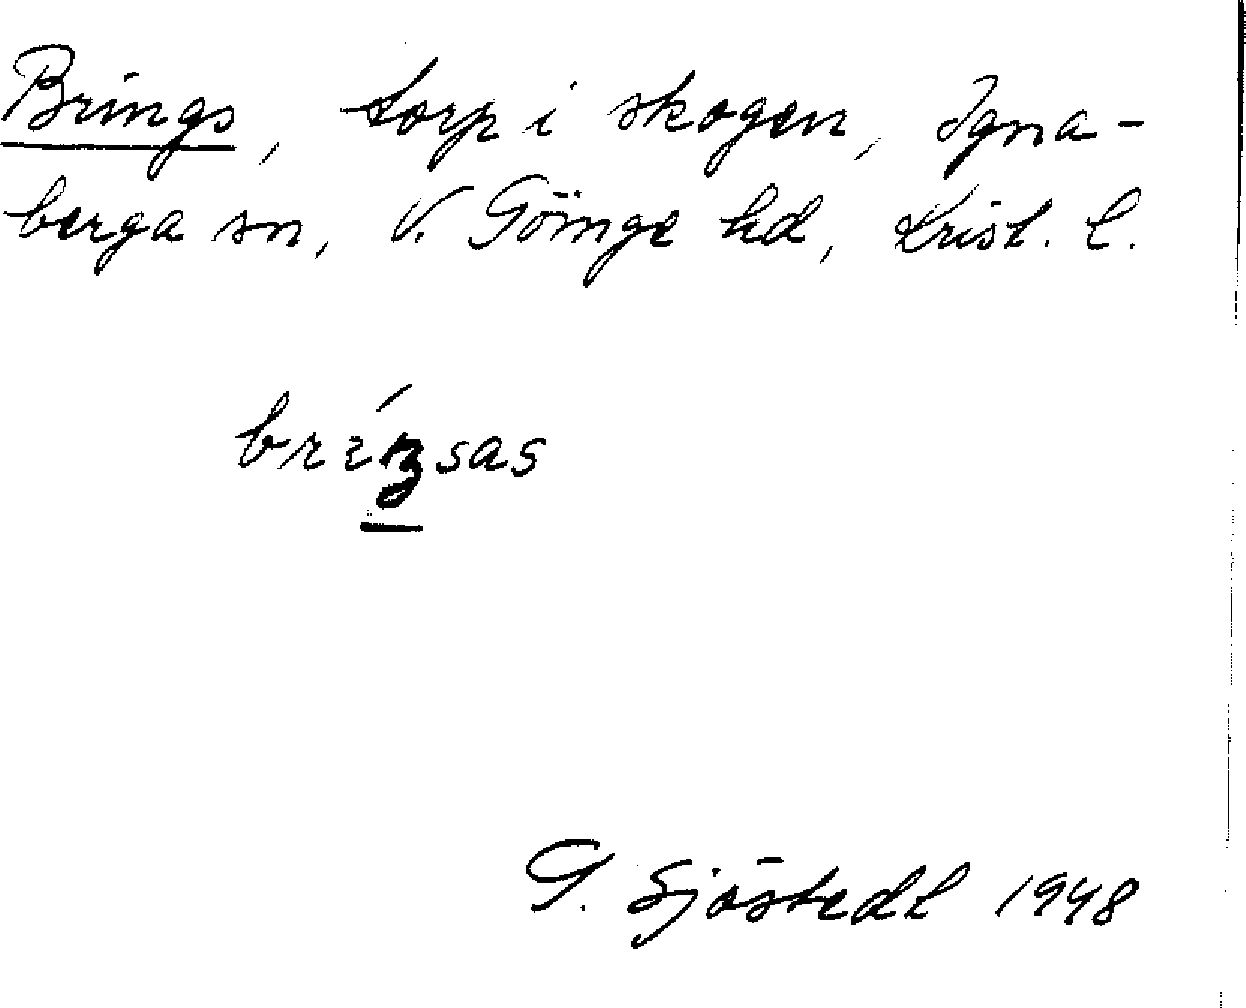 Brings, torp i skogen, Igna-
berga sn, V. Göinge hd, Krist. l.
bréŋsas
G. Sjöstedt 1948